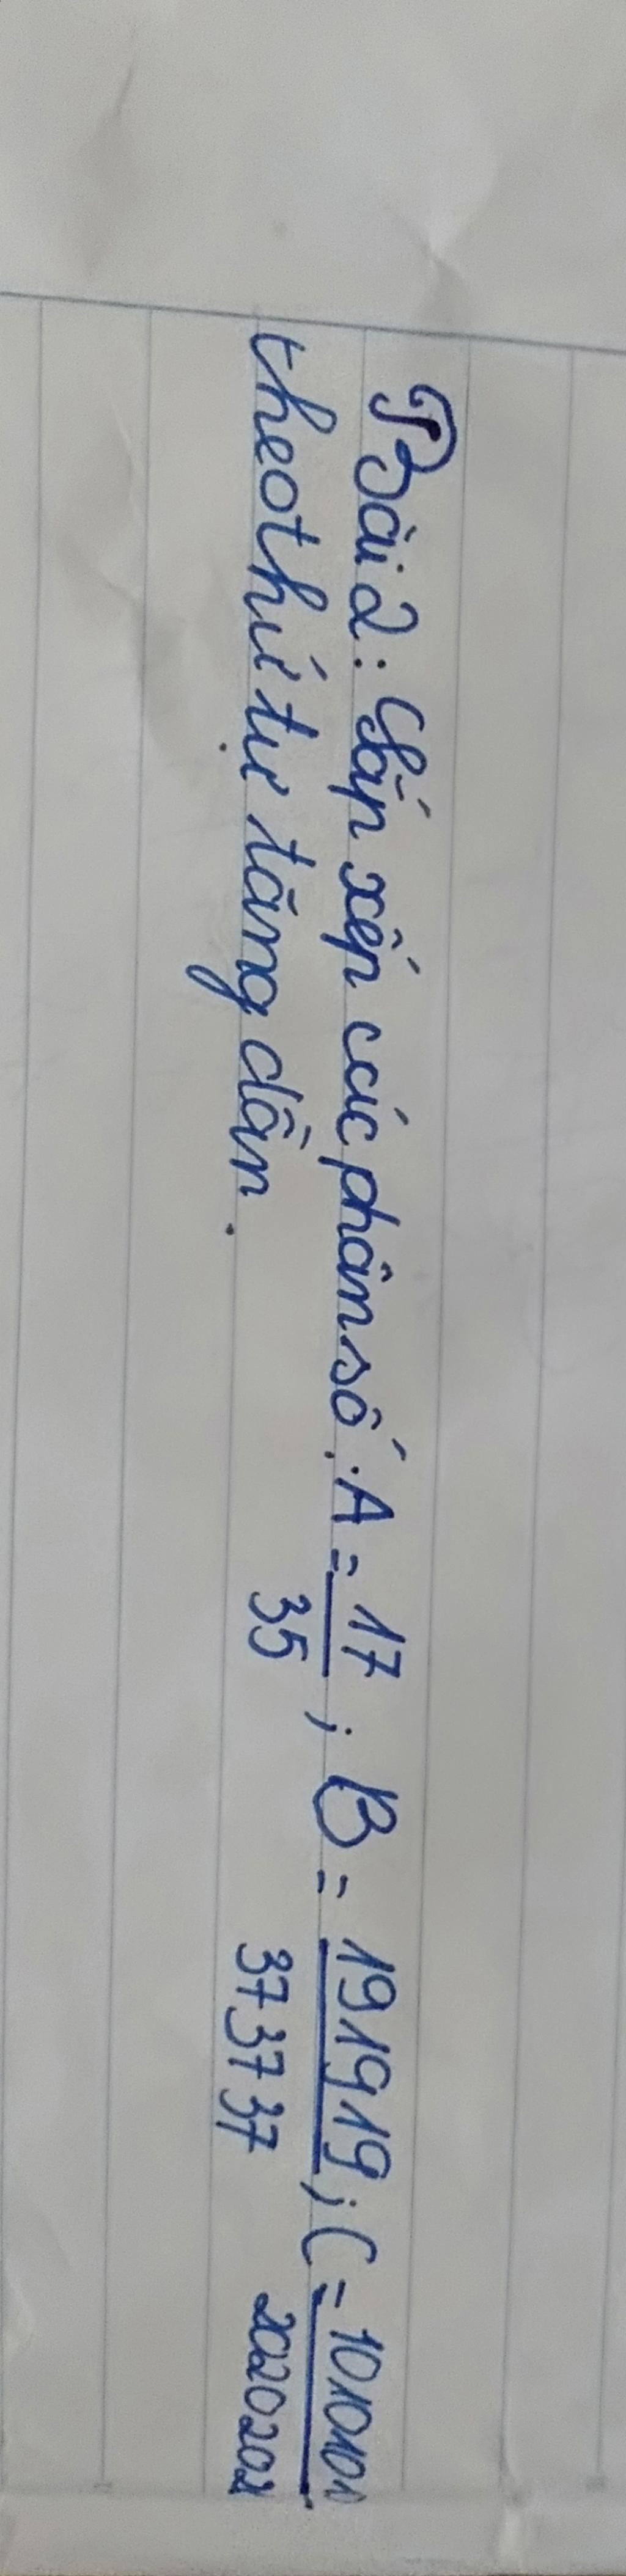 Bài 2: Sắp xếp các phân số: A = 17/35 ; B = 191919/373737 ; C =
theo thứ tự tăng dần.